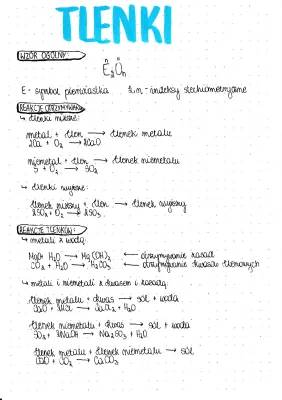 TLENKI
WZÓR OGÓLNY:
E₂Oₙ
E - symbol pierwiastka 2, n - indeksy stechiometryczne
REAKCJE OTRZYMYWANIA
↳ tlenki niższe:
metal + tlen → tlenek metalu
2Ca + O₂ → 2CaO
niemetal + tlen → tlenek niemetalu
S + O₂ → SO₂
↳ tlenki wyższe:
tlenek niższy + tlen → tlenek wyższy
2SO₂ + O₂ → 2SO₃
REAKCJE TLENKÓW:
↳ metali z wodą:
MgO + H₂O → Mg(OH)₂ ← otrzymywanie zasad
CO₂ + H₂O → H₂CO₃ ← otrzymywanie kwasów tlenowych
↳ metali i niemetali z kwasem i zasadą:
tlenek metalu + kwas → sól + woda
CaO + 2HCl → CaCl₂ + H₂O
tlenek niemetalu + kwas → sól + woda
SO₂ + 2NaOH → Na₂SO₃ + H₂O
tlenek metalu + tlenek niemetalu → sól
CaO + CO₂ → CaCO₃